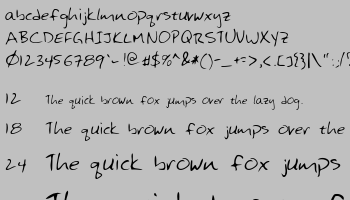 abcdefghijklmnopqrstuvwxyz
ABCDEFGHIJKLMNOPQRSTUVWXYZ
0123456789`~!@#$%^&*()-_+=>,<.[]{}|\":;/?
12 The quick brown fox jumps over the lazy dog.
18 The quick brown fox jumps over the
24 The quick brown fox jumps